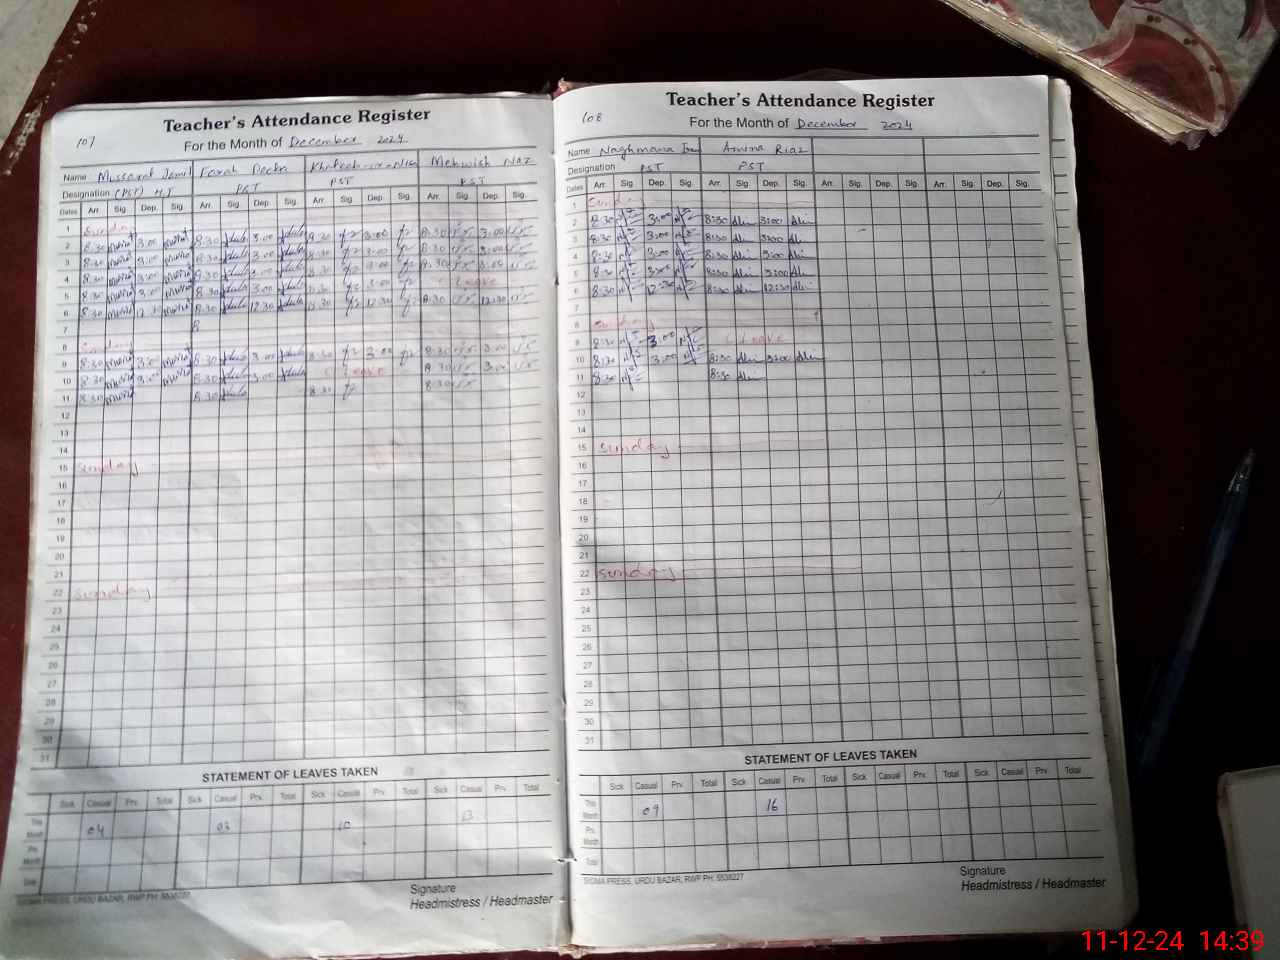 107
Teacher's Attendance Register
For the Month of December 2024
Name Mussarat Jamil Farah Khateeb-un-Nisa Mehwish Naz
Designation (PST) H.T PST PST PST
Dates Arr. Sig. Dep. Sig. Arr. Sig. Dep. Sig. Arr. Sig. Dep. Sig. Arr. Sig. Dep. Sig.
1 Sunday
2 8:30 3:00 8:30 3:00 8:30 3:00 8:30 3:00
3 8:30 3:00 8:30 3:00 8:30 3:00 8:30 3:00
4 8:30 3:00 8:30 3:00 8:30 3:00 8:30 3:00
5 8:30 3:00 8:30 3:00 8:30 3:00 C Leave
6 8:30 12:30 8:30 12:30 8:30 12:30 8:30 12:30
7
8 Sunday
9 8:30 3:00 8:30 3:00 8:30 3:00 8:30 3:00
10 8:30 3:00 8:30 3:00 C Leave 8:30 3:00
11 8:30 8:30 8:30 8:30
12
13
14
15 Sunday
16
17
18
19
20
21
22 Sunday
23
24
25
26
27
28
29
30
31
STATEMENT OF LEAVES TAKEN
Sick Casual Prv. Total Sick Casual Prv. Total Sick Casual Prv. Total Sick Casual Prv. Total
This Month 04 03 10 13
Prv. Month
Total
SIGMA PRESS, URDU BAZAR, RWP PH: 5538227
Signature
Headmistress / Headmaster
108
Teacher's Attendance Register
For the Month of December 2024
Name Naghmana Amina Riaz
Designation PST PST
Dates Arr. Sig. Dep. Sig. Arr. Sig. Dep. Sig. Arr. Sig. Dep. Sig. Arr. Sig. Dep. Sig.
1 Sunday
2 8:30 3:00 8:30 3:00
3 8:30 3:00 8:30 3:00
4 8:30 3:00 8:30 3:00
5 8:30 3:00 8:30 3:00
6 8:30 12:30 8:30 12:30
7
8 Sunday
9 8:30 3:00 C Leave
10 8:30 3:00 8:30 3:00
11 8:30 8:30
12
13
14
15 Sunday
16
17
18
19
20
21
22 Sunday
23
24
25
26
27
28
29
30
31
STATEMENT OF LEAVES TAKEN
Sick Casual Prv. Total Sick Casual Prv. Total Sick Casual Prv. Total Sick Casual Prv. Total
This Month 09 16
Prv. Month
Total
SIGMA PRESS, URDU BAZAR, RWP PH: 5538227
Signature
Headmistress / Headmaster
11-12-24 14:39